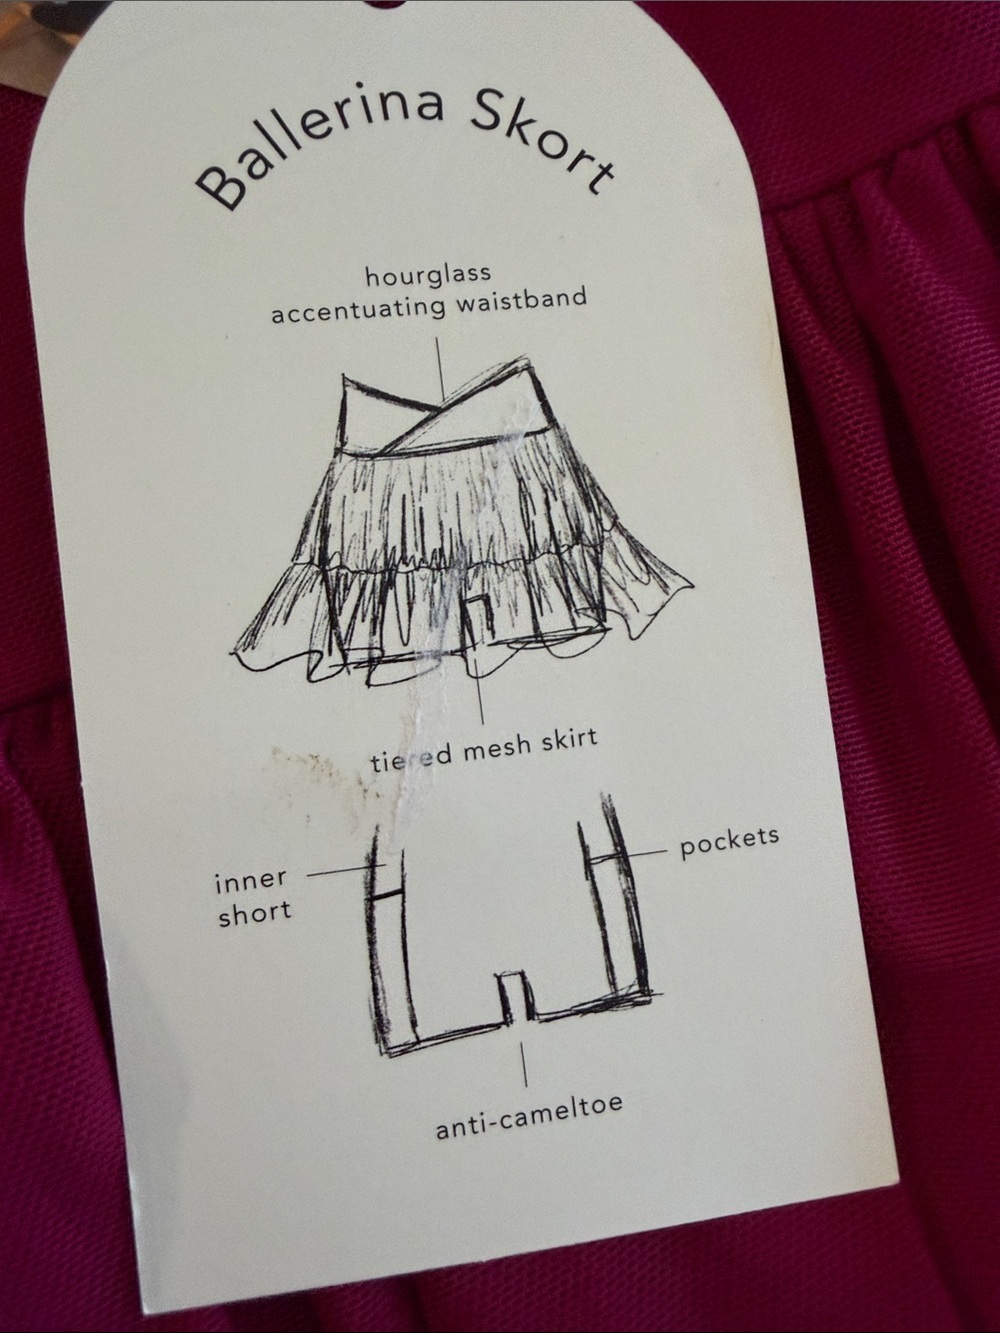 Ballerina Skort
hourglass
accentuating waistband
tiered mesh skirt
inner
short
pockets
anti-cameltoe